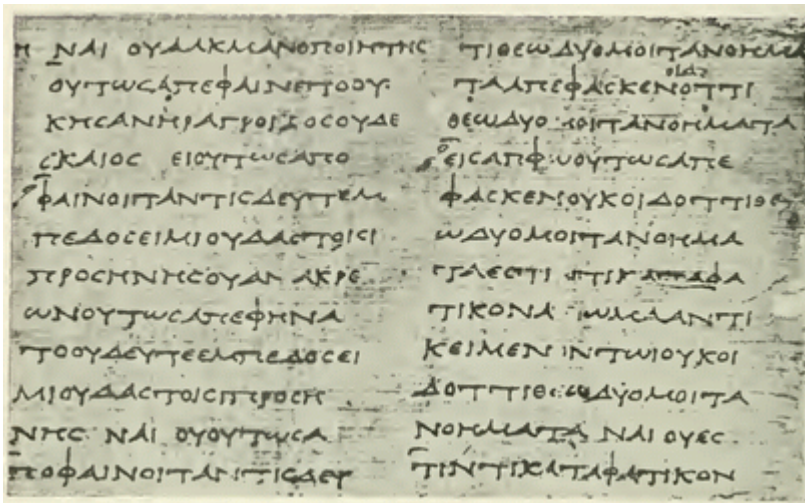 Η ΝΑΙ ΟΥΑΛΚΜΑΝΟΠΟΙΗΤΗϹ
ΟΥΤΩϹΑΠΕΦΑΙΝΕΤΟΟΥ
ΚΗϹΑΝΗΡΑΓΡΟΙΚΟϹΟΥΔΕ
ϹΚΑΙΟϹ ΕΙΟΥΤΩϹΑΠΟ
ΦΑΙΝΟΙΤΑΝΤΙϹΔΕΥΤΕΜ
ΠΕΔΟϹΕΙΜΙΟΥΔΑϹΤΟΙϹΙ
ΠΡΟϹΗΝΗϹΟΥΑΝ ΑΚΡΕ
ΩΝΟΥΤΩϹΑΠΕΦΗΝΑ
ΤΟΟΥΔΕΥΤΕΕΜΠΕΔΟϹΕΙ
ΜΙΟΥΔΑϹΤΟΙϹΠΡΟϹΗ
ΝΗϹ ΝΑΙ ΟΥΟΥΤΩϹΑ
ΠΟΦΑΙΝΟΙΤΑΝΤΙϹΔΕΥ
ΤΙΘΕΩΔΥΟΜΟΙΤΑΝΟΗΜΑ
ΤΑΑΠΕΦΑϹΚΕΝΟΤΤΙ
ΘΕΩΔΥΟ ΜΟΙΤΑΝΟΗΜΑΤΑ
ΟΥΤΩϹΑΠΕ
ΦΑϹΚΕΝΟΥΚΟΙΔΟΤΤΙΘΕ
ΩΔΥΟΜΟΙΤΑΝΟΗΜΑ
ΤΑΕϹΤΙ ΤΙΚΑΤΑΦΑ
ΤΙΚΟΝ ΑΝΤΙ
ΚΕΙΜΕΝ ΤΩΙΟΥΚΟΙ
ΔΟΤΤΙΘΕΩΔΥΟΜΟΙΤΑ
ΝΟΗΜΑΤΑ ΝΑΙ ΟΥΕϹ
ΤΙΝΤΙΚΑΤΑΦΑΤΙΚΟΝ